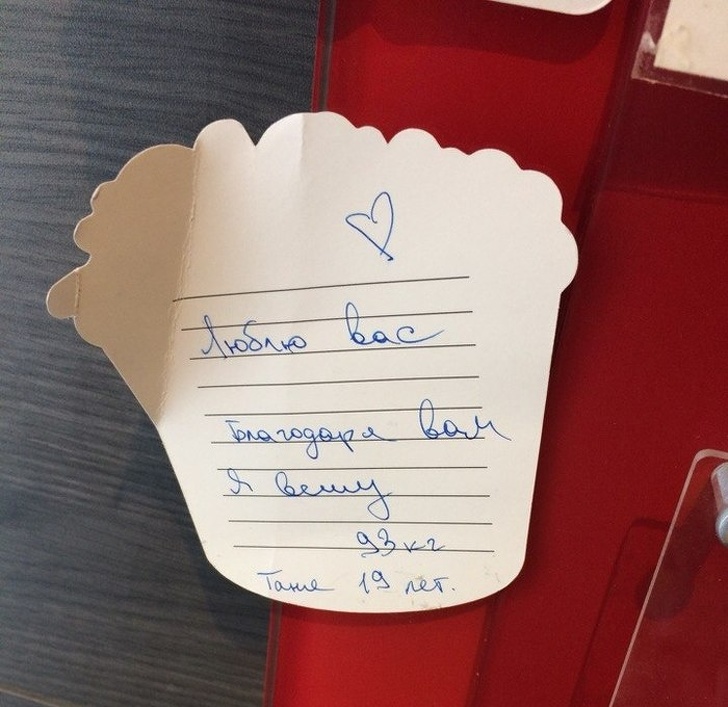 Люблю вас
Благодаря вам
Я вешу
93 кг
Тане 19 лет.